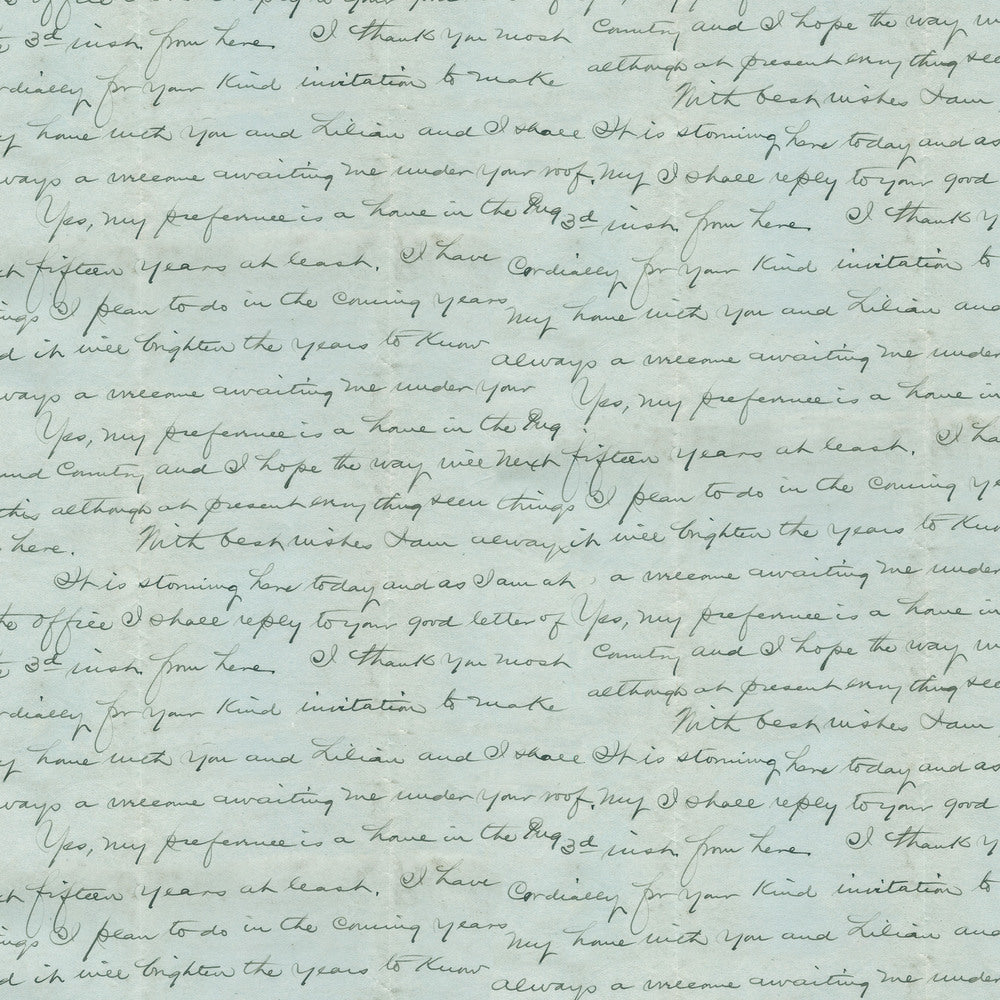 3d inst from here. I thank you most
rdially for your kind invitation to make
y home with you and Lilian and I shall
ways a welcome awaiting me under your roof.
Yes, my preference is a home in the Pug
xt fifteen years at least. I have
ings I plan to do in the coming years
d it will brighten the years to know
ways a welcome awaiting me under your
Yes, my preference is a home in the Pug
und Country and I hope the way will
this although at present everything seem
here. With best wishes I am always
It is storming here today and as I am at
the office I shall reply to your good letter of
3d inst from here. I thank you most
rdially for your kind invitation to make
y home with you and Lilian and I shall
ways a welcome awaiting me under your roof.
Yes, my preference is a home in the Pug
xt fifteen years at least. I have
ings I plan to do in the coming years
d it will brighten the years to know
Country and I hope the way wi
although at present everything see
With best wishes I am
It is storming here today and as
My I shall reply to your good
3d inst from here. I thank y
Cordially for your kind invitation to
my home with you and Lilian and
always a welcome awaiting me under
Yes, my preference is a home in
next fifteen years at least. I ha
things I plan to do in the coming ye
it will brighten the years to know
a welcome awaiting me under
Yes, my preference is a home in
Country and I hope the way wi
although at present everything see
With best wishes I am
It is storming here today and as
My I shall reply to your good
3d inst from here. I thank y
Cordially for your kind invitation to
my home with you and Lilian and
always a welcome awaiting me under